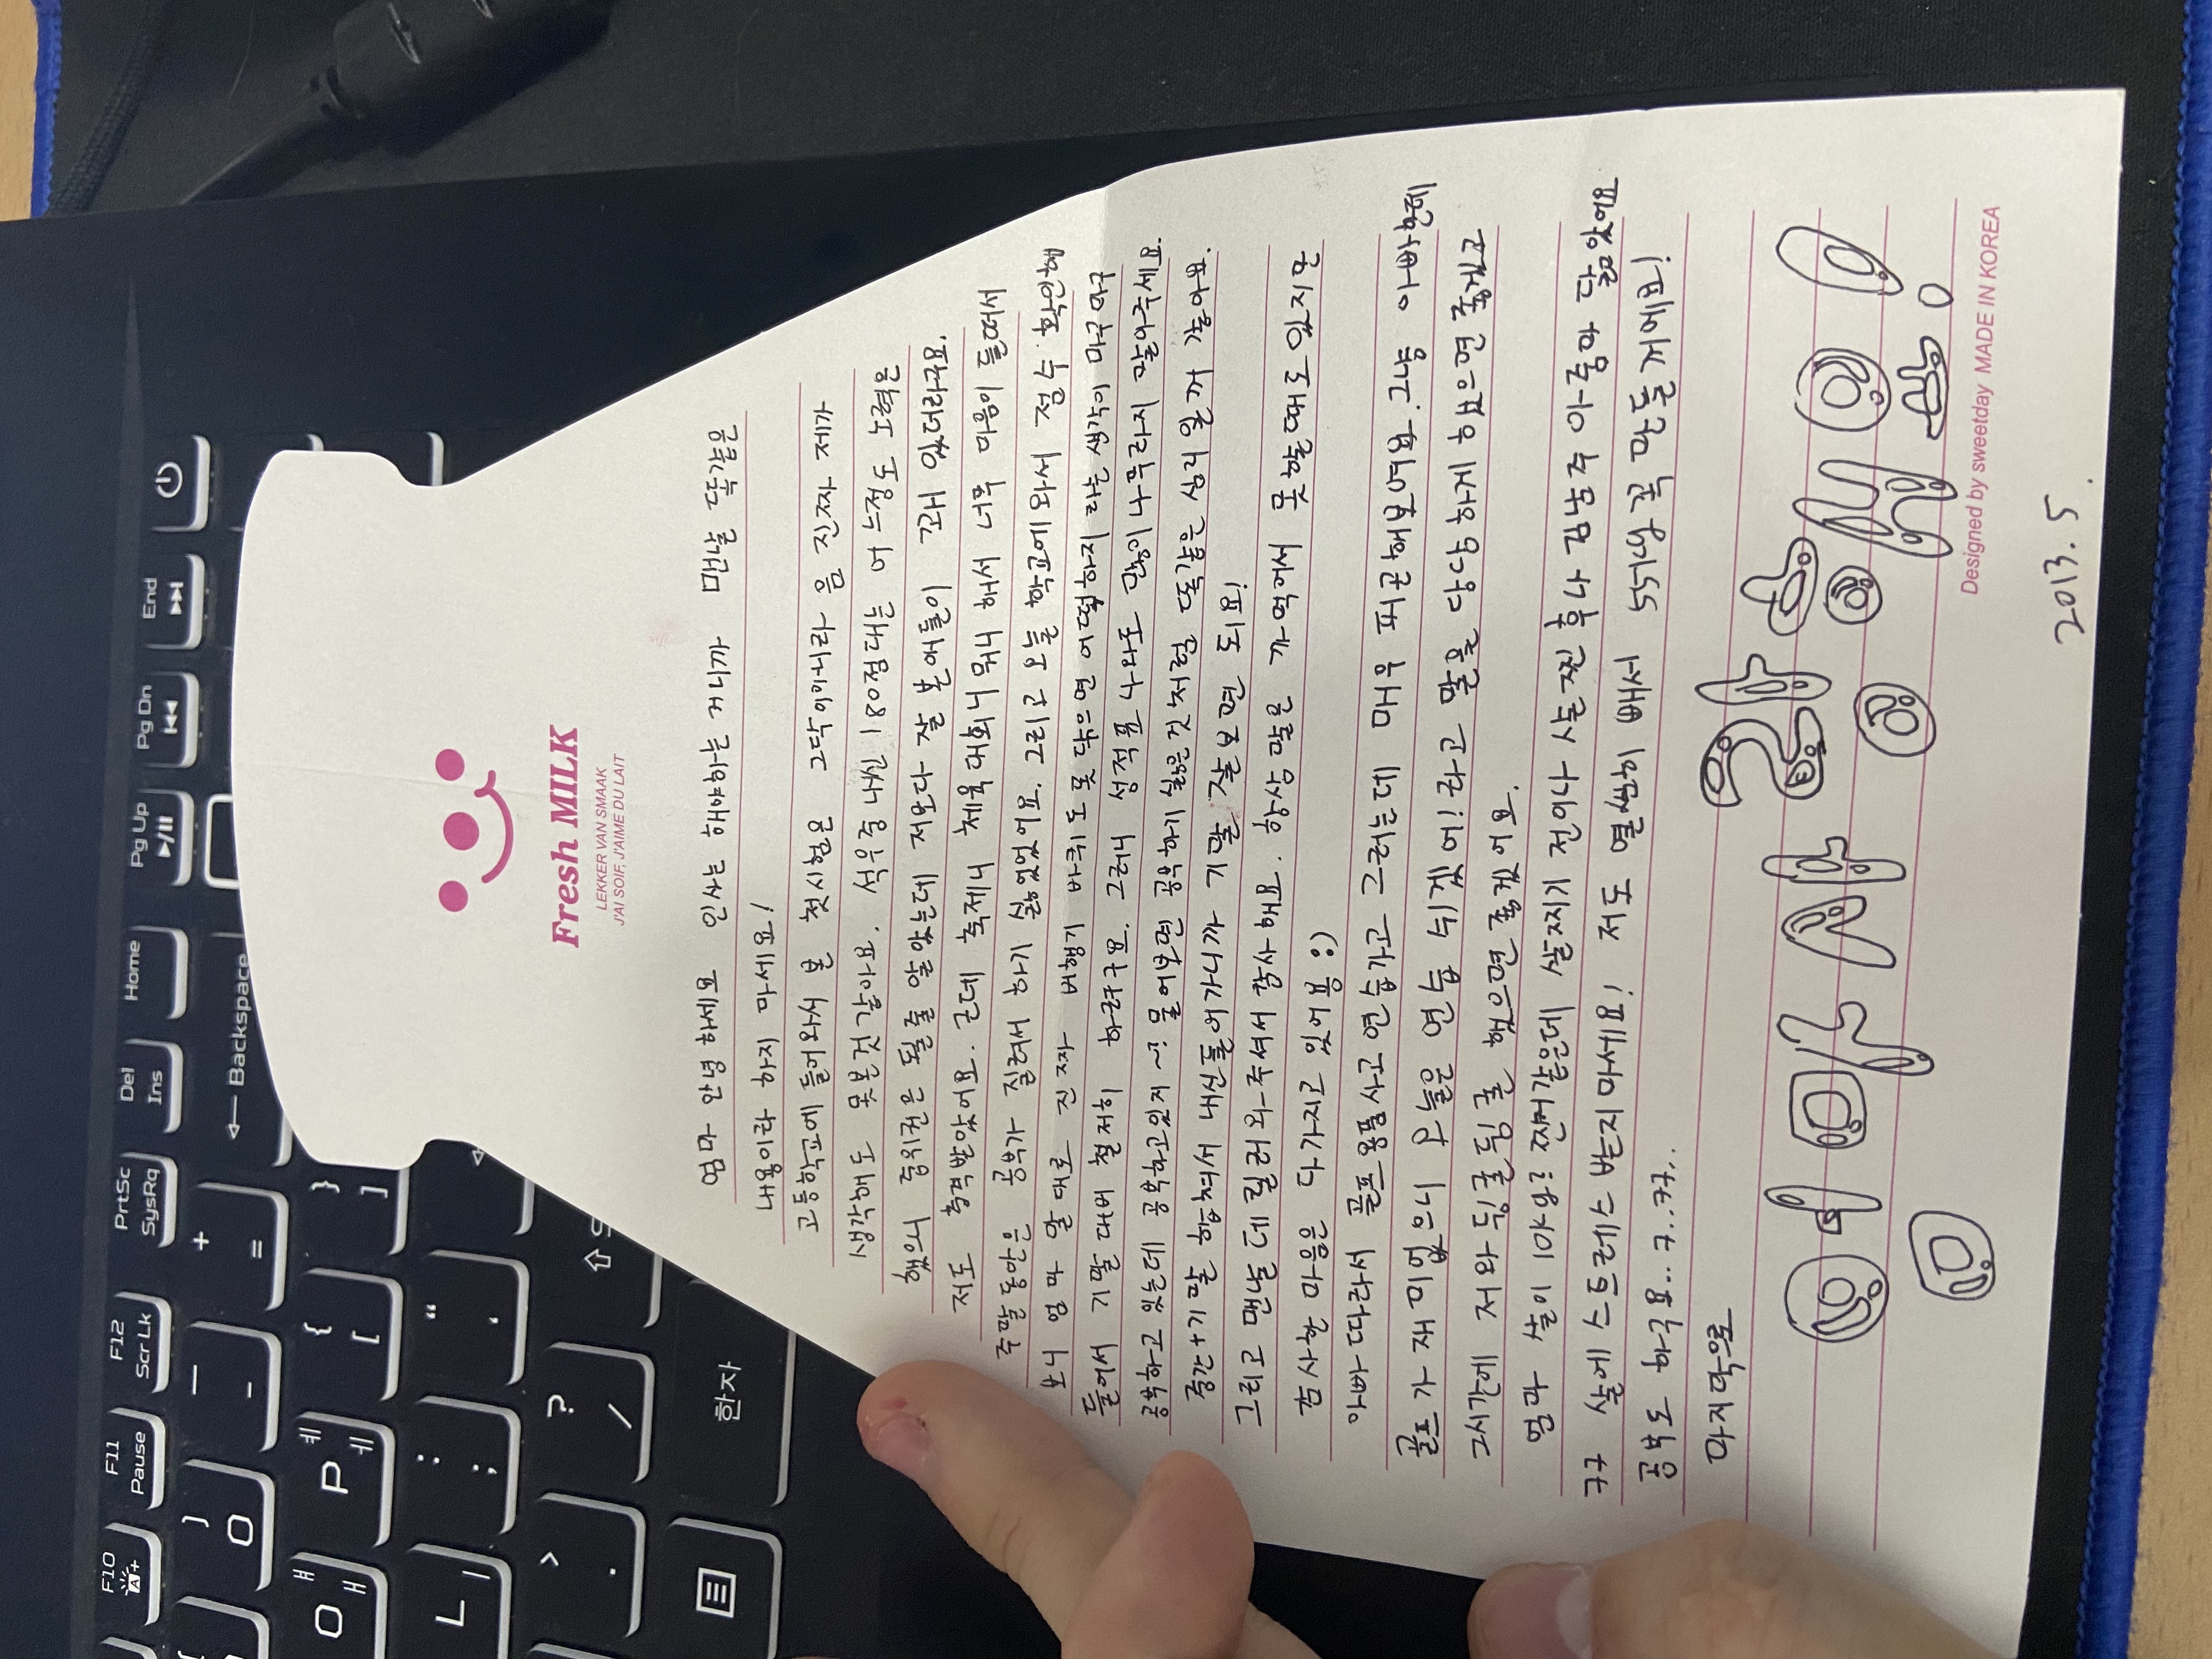 F10
F11
Pause
F12
Scr Lk
PrtSc
SysRq
Del
Ins
Home
Pg Up
Pg Dn
End
)
0
—
-
+
=
← Backspace
O ㅒ
ㅐ
P ㅖ
ㅔ
{
[
}
]
L
ㅣ
:
;
“
‘
>
.
?
/
한자
Fresh MILK
LEKKER VAN SMAAK
J'AI SOIF, J'AIME DU LAIT
엄마 안녕하세요 인사는 해야하는 거니까 맨날 똑같은
내용이라 하지 마세요!
고등학교에 들어와서 본 첫시험은 그닥이아니라 음 진짜 제가
생각해도 못본것 같아요. 석우중 내신 180점대는 어느정도 노력은
했으니 중위권은 될줄 알았는데 저보다 잘 본애들이 꽤 있더라구요.
저도 충격받았어요. 근데 축제니 체육대회니 뭐니 해서 너무 마음이 들떠서
주말동안은 공부가 질려서 하기 싫었었어요. 그리고 오늘 학교에 와서 점수 확인해
보니 엄마 말대로 진짜 비행기 바퀴도 못 닦으면 어떡하지 라는 생각이 마구마구
들어서 기말대비 철저히 하려구요. 그러니 성적표 나와도 많이 나무라지 말아주세요.
공부하고 있는데 공부하고있지~? 물어보면 공부하기 싫은것처럼 똑같은 심리일꺼 같아요.
중간+기말 합쳐서 내신들어가니까 기말 잘보면 되요!
그리고 맨날 데릴러와주셔서 감사해요. 항상 말은 까먹어서 못할때도 있지만
감사한 마음은 다 가지고 있어용 :)
아빠 따라서 골프용품사고 연습가고 그러는데 매우 피곤해보여요. 그냥 아빠한테
골프가 재미없으니 오늘은 연습 쉬겠어! 라고 말을 당당하게 했으면 좋겠고
그시간에 저와 뒹굴뒹굴 했으면 좋겠어요.
엄마 살이 10kg? 찐거같은데 살찌기 전이나 살찐 후나 김남주 아줌마 닮았어요
ㅋㅋ 살에 스트레스 받지마세요! 저도 열씸히 빼서 55kg 꼭 만들꺼에요!
공부도 하구요.. ㅋ..ㅋㅋ..
마지막으로
엄마 사랑해용!
Designed by sweetday MADE IN KOREA
2013. 5.